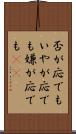 否が応でも
いやが応で
も嫌が応で
も